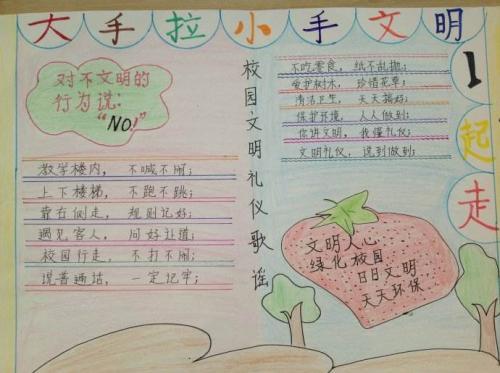 大手拉小手文明
1
起
走
对不文明的
行为说：
"NO!"
教学楼内，不喊不闹；
上下楼梯，不跑不跳；
靠右侧走，规则记好；
遇见客人，问好让道；
校园行走，不打不闹；
说普通话，一定记牢；
校园文明礼仪歌谣
不吃零食，纸不乱抛；
爱护树木，珍惜花草；
清洁卫生，天天搞好；
保护环境，人人做到；
你讲文明，我懂礼仪；
文明礼仪，说到做到；
文明人心
绿化校园
日日文明
天天环保